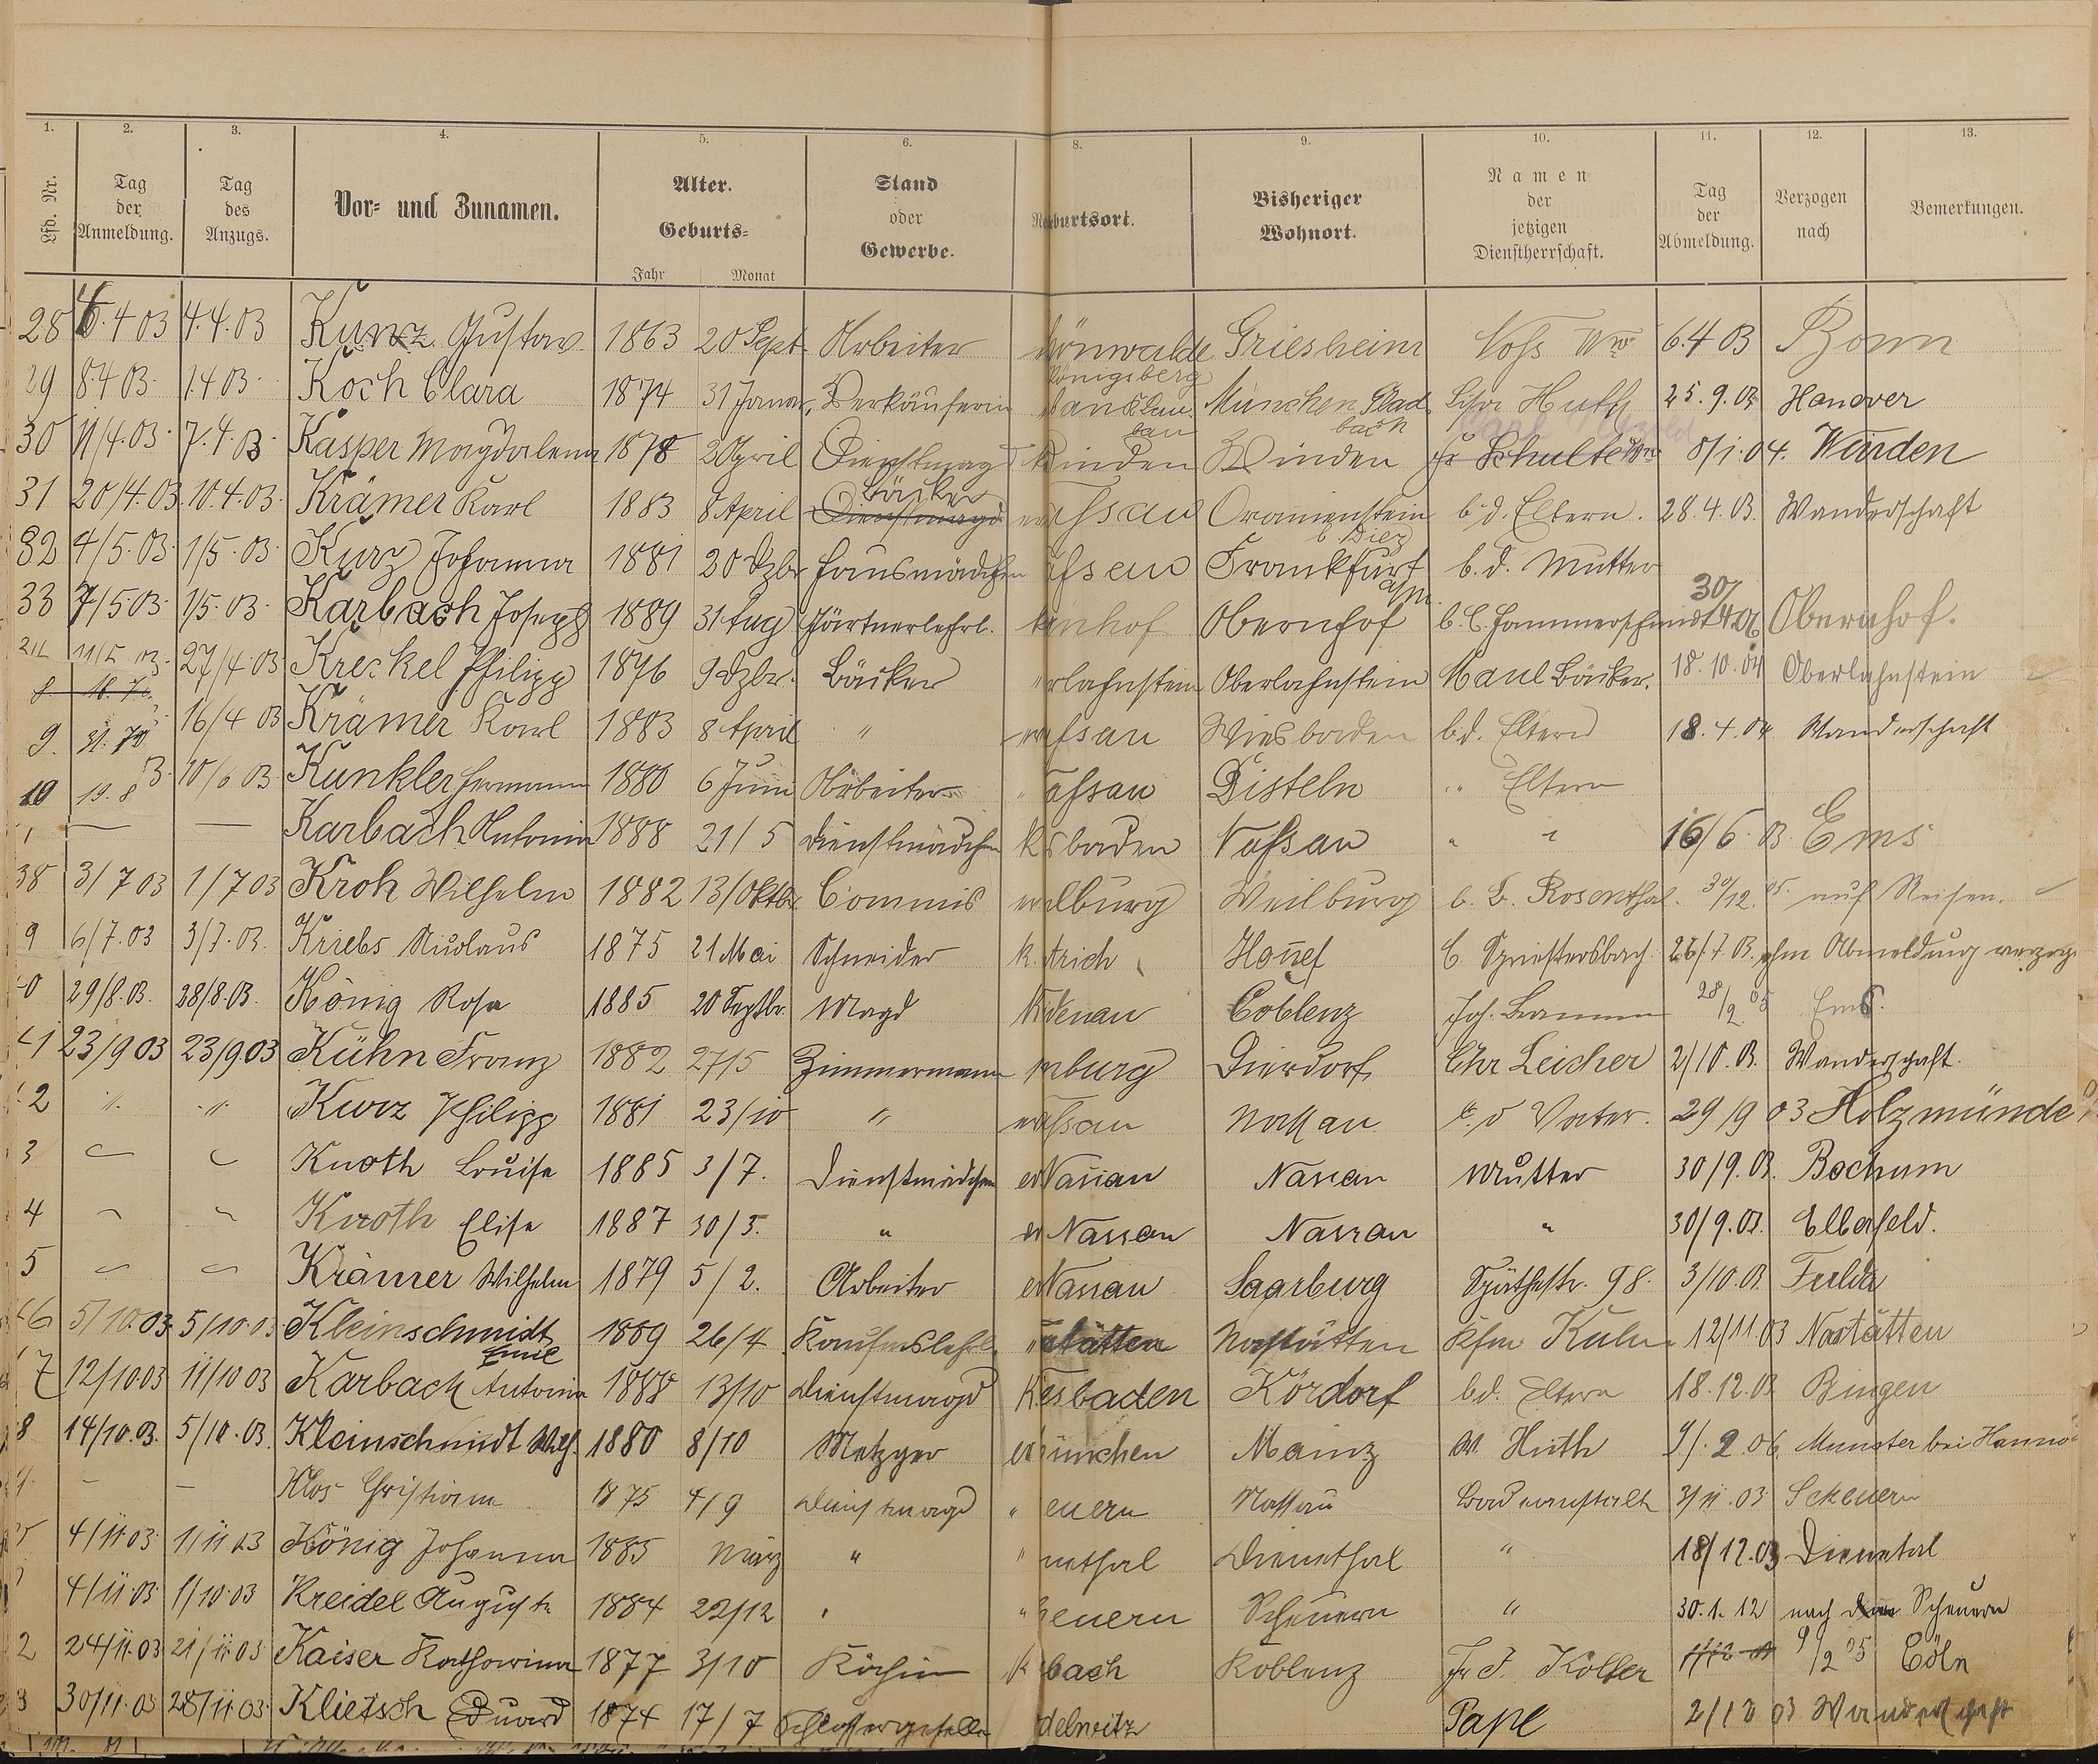 1. 2. 3. 4. 5. 6. 8. 9. 10. 11. 12. 13.
Lfd. Nr. Tag der Anmeldung. Tag des Anzugs. Vor- und Zunamen. Alter. Geburts- Jahr Monat Stand oder Gewerbe. burtsort. Bisheriger Wohnort. Namen der jetzigen Dienstherrschaft. Tag der Abmeldung. Verzogen nach Bemerkungen.
28 6.4 03 4.4.03 Kunz Gustav 1863 20 Sept. Arbeiter önwalde Königsberg Griesheim Voss Ww 6.4 03 Bonn
29 8.4 03 1.4 03 Koch Clara 1874 31 Januar Verkäuferin München Gladbach Huth 25.9.03 Hanover
30 11/4.03 7.4.03 Kasper Magdalena 1878 2 April Dienstmagd inden Winden Schulte 8/1.04. Winden
31 20/4.03 10.4.03 Krämer Karl 1883 8 April Bäcker Dienstmagd assau Oranienstein b Diez b. d. Eltern. 28.4.03. Wanderschaft
32 4/5.03 1/5.03 Kurz Johanna 1881 20 Dzbr Hausmädchen Frankfurt a/M. b. d. Mutter
33 7/5.03 1/5.03 Karbach Joseph 1889 31 Aug Gärtnerlehrl. nhof Obernhof b. C. Hammerschmidt 30/4 06 Obernhof.
11/5 03 27/4.03 Kreckel Philipp 1876 9 Dzbr. Bäcker rlahnstein Oberlahnstein Maul Bäcker. 18.10.04 Oberlahnstein
9. 31. 70 16/4 03 Krämer Karl 1883 8 April " assau Wiesbaden b.d. Eltern 18.4.04 Wanderschaft
10 19. 8 03. 10/6 03 Kunkler Hermann 1880 6 Juni Arbeiter assau Disteln " Eltern
— — Karbach Antonia 1888 21/5 Dienstmädchen sbaden Nassau " " 16/6 03. Ems
38 3/7 03 1/7 03 Kroh Wilhelm 1882 13/Oktbr. Commis lburg Weilburg b. L. Rosenthal. 30/12. 05. auf Reisen.
9 6/7.03 3/7.03. Kriebs Nicolaus 1875 21 Mai Schneider trich Honnef b. Spriestersbach. 26/7.03. ohne Abmeldung verzog.
0 29/8.03. 28/8.03. König Rosa 1885 20 Septbr. Magd denau Coblenz Joh. 28/2 05 Ems.
41 23/9 03 23/9.03 Kühn Franz 1882 27/5 Zimmermann nburg Dierdorf Chr Leicher 2/10.03. Wanderschaft.
2 " " Kurz Philipp 1881 23/10 " assau Nassau Vater. 29/9 03 Holzmünde
3 Knoth Louise 1885 3/7. Dienstmädchen Nassau Nassau Mutter 30/9.03. Bochum
4 Knoth Elise 1887 30/5. " Nassau Nassau " 30/9.03. Elberfeld.
5 Krämer Wilhelm 1879 5/2. Arbeiter Nassau Saarburg Späthestr. 98. 3/10.03. Fulda
46 5/10.03 5/10.03 Kleinschmidt Emil 1889 26/4 Kaufmslehrl. stätten Nastätten Kfm Kuhn 12/11 03 Nastätten
7 12/10 03 11/10 03 Karbach Antonia 1888 13/10 Dienstmagd esbaden Kördorf b.d. Eltern 18.12.03 Bingen
8 14/10.03. 5/10.03. Kleinschmidt Wilh. 1880 8/10 Metzger ünchen Mainz W Huth 9/.2 06 Munster bei Hanno
9. — — Klos Christiane 1875 4/9 Dienstmagd " euern Nassau Badeanstalt 3/11.03 Scheuern
4/11.03 1/11 03 König Johanna 1885 März " " nethal Dienethal " 18/12.03 Dienetal
4/11.03 1/10.03 Kreidel Auguste 1884 22/12 " " euern Scheuern " 30.1.12 nach Scheuern
2 24/11.03 21/11.03 Kaiser Katharina 1877 3/10 Köchin bach Koblenz Fr. J. Kolter 9/2 05 Cöln
3 30/11.03 28/11.03 Klietsch Eduard 1874 17/7 Schlossergeselle delwitz Pape 2/12 03 Wanderschaft